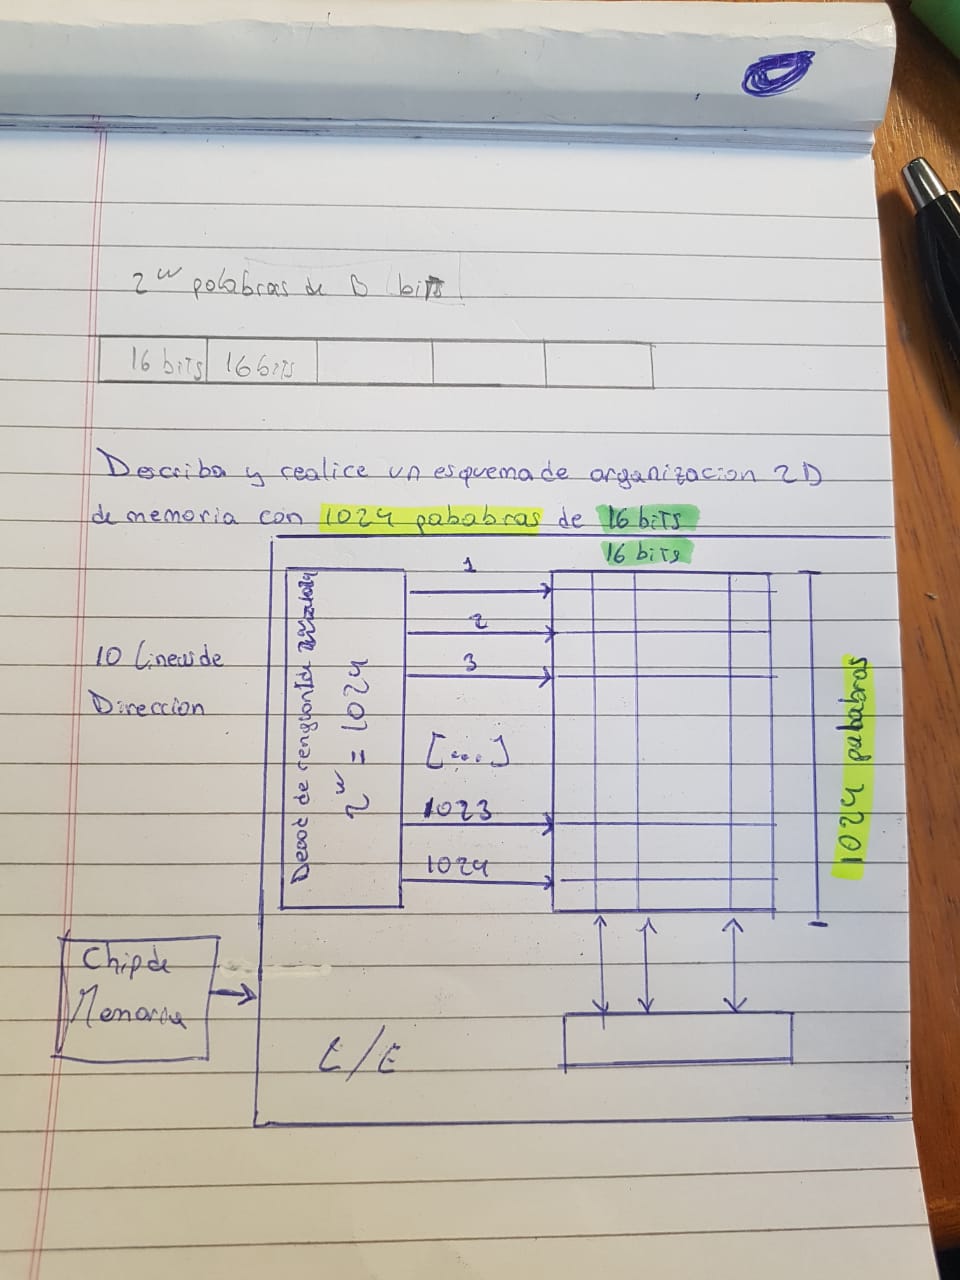 2^w palabras de B bits
16 bits 16 bits
Describa y realice un esquema de organizacion 2D
de memoria con 1024 pababras de 16 bits
16 bits
10 Lineas de
Direccion
Decod de renglon de
2^w = 1024
1
2
3
[...]
1023
1024
1024 pababras
Chip de
Memoria
L/E